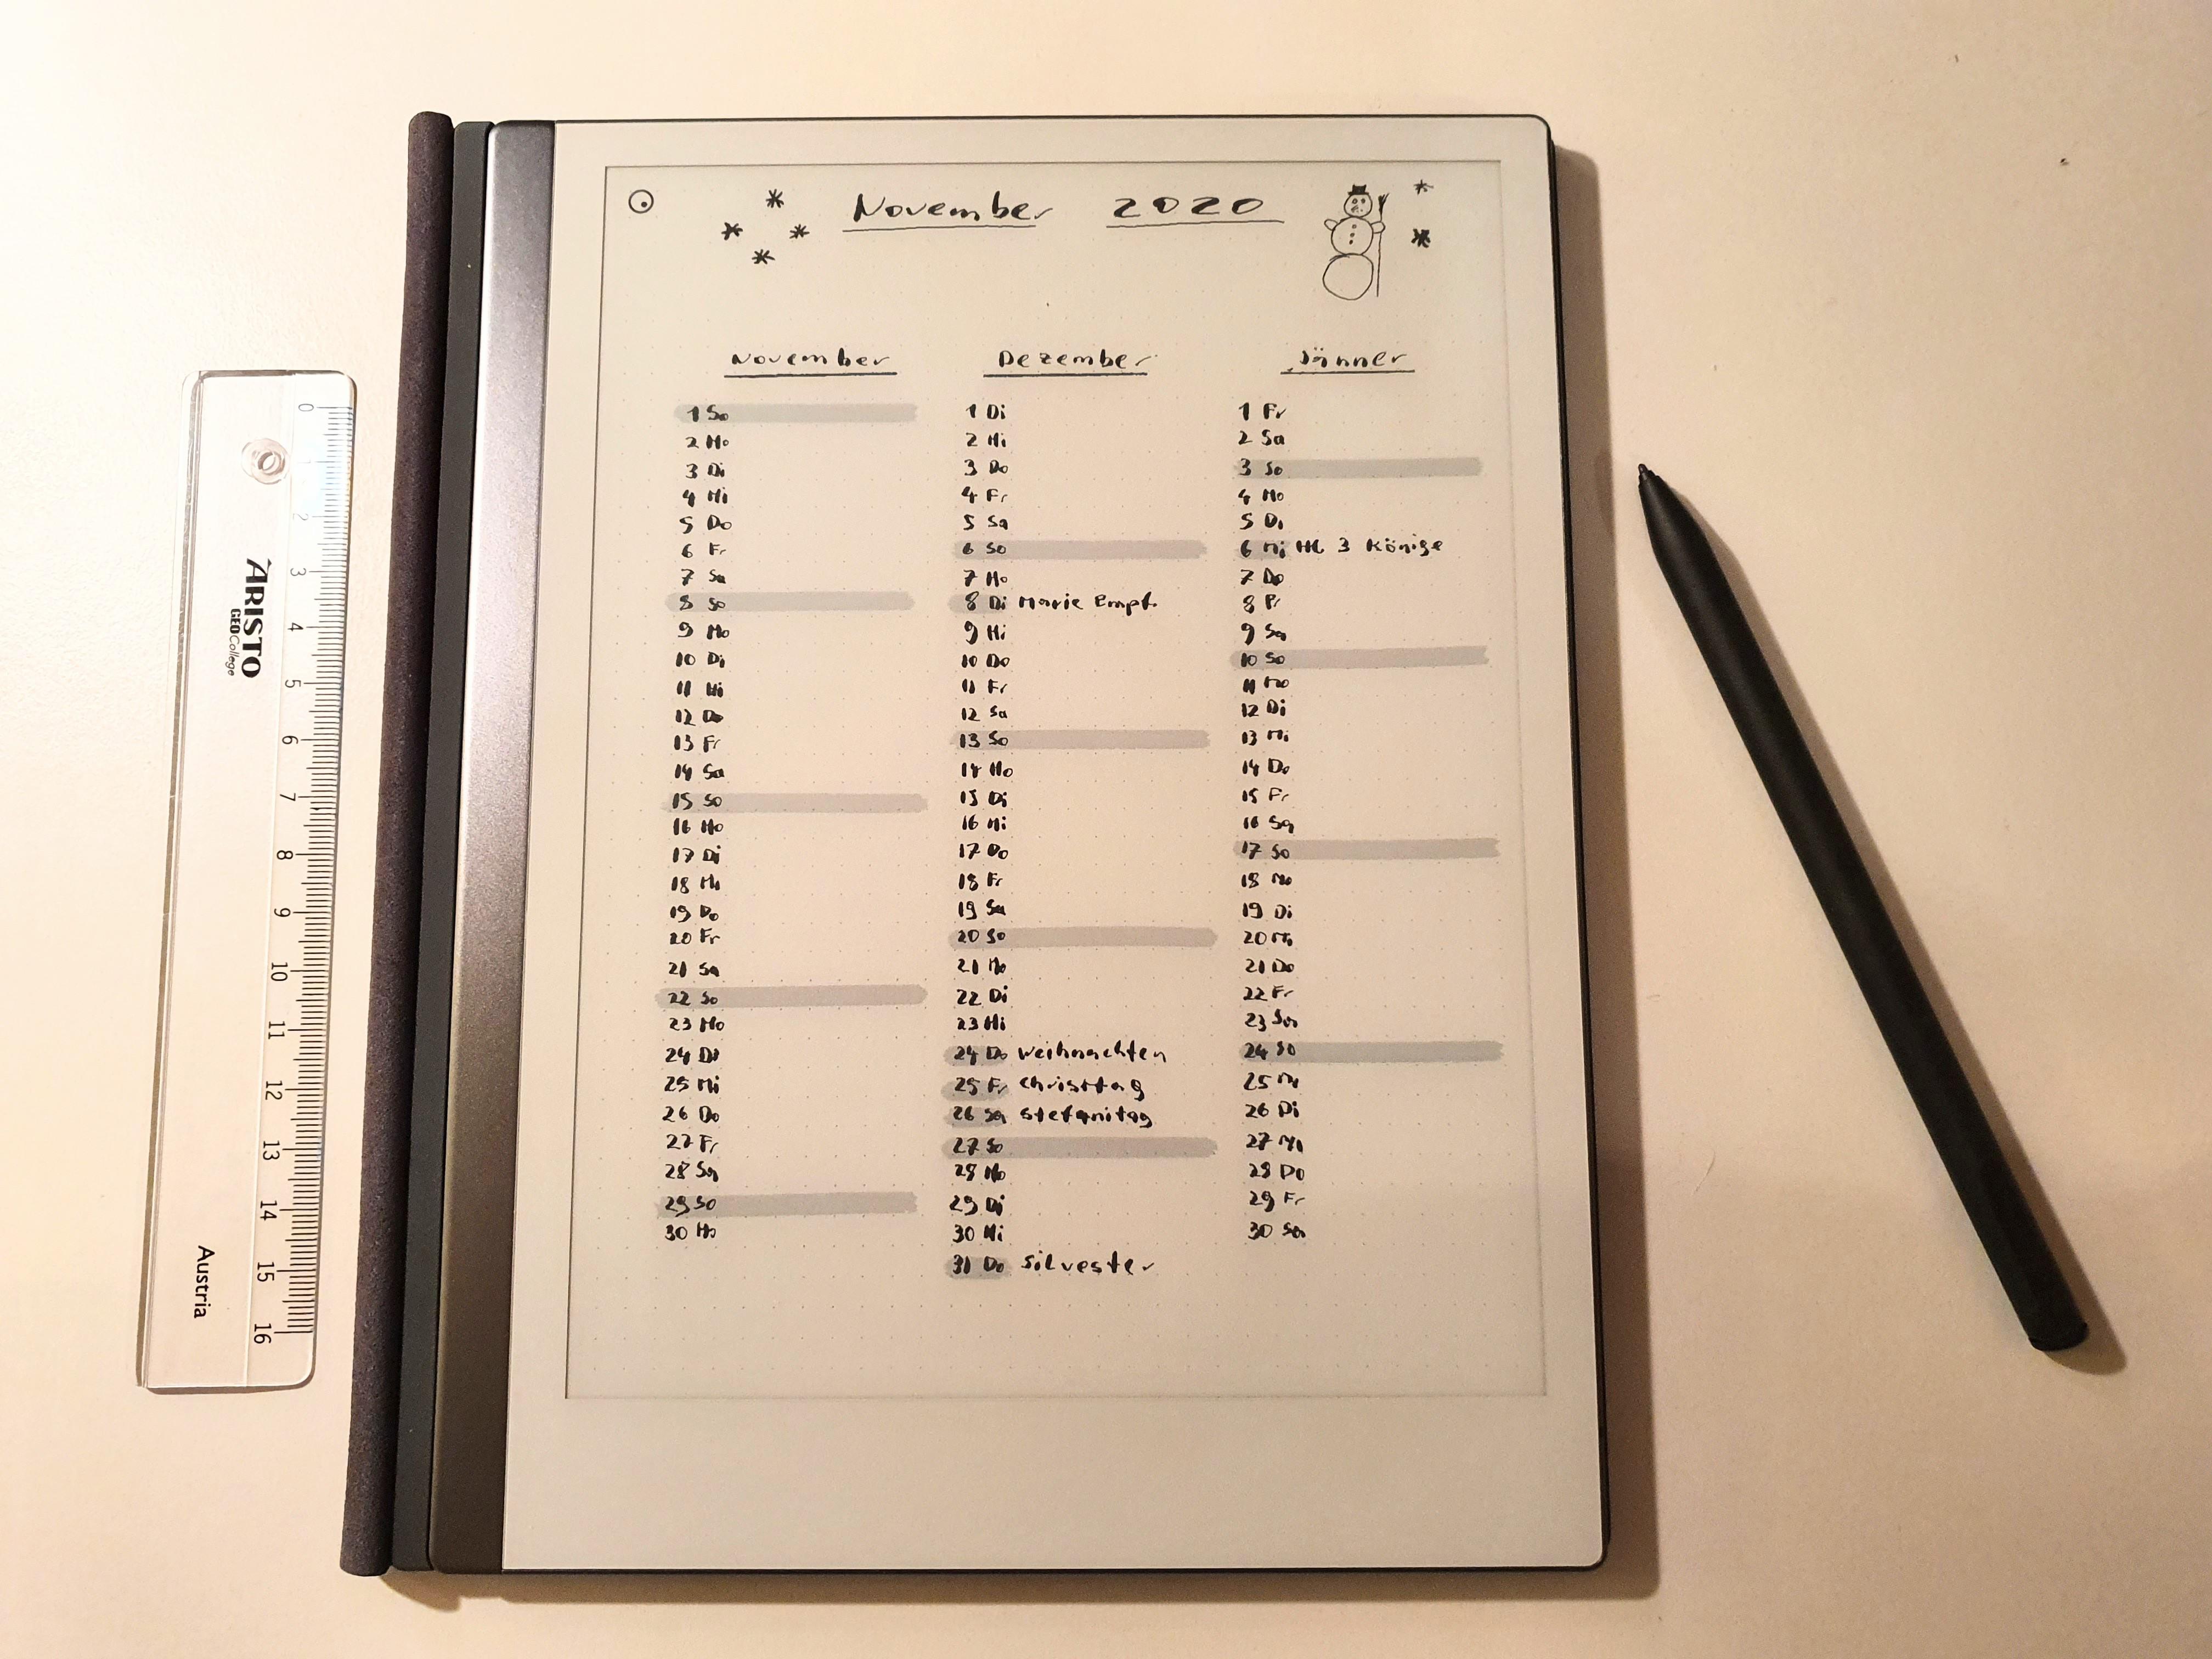 November 2020
November
1 So
2 Mo
3 Di
4 Mi
5 Do
6 Fr
7 Sa
8 So
9 Mo
10 Di
11 Mi
12 Do
13 Fr
14 Sa
15 So
16 Mo
17 Di
18 Mi
19 Do
20 Fr
21 Sa
22 So
23 Mo
24 Di
25 Mi
26 Do
27 Fr
28 Sa
29 So
30 Mo
Dezember
1 Di
2 Mi
3 Do
4 Fr
5 Sa
6 So
7 Mo
8 Di Marie Empf.
9 Mi
10 Do
11 Fr
12 Sa
13 So
14 Mo
15 Di
16 Mi
17 Do
18 Fr
19 Sa
20 So
21 Mo
22 Di
23 Mi
24 Do Weihnachten
25 Fr Christtag
26 Sa Stefanitag
27 So
28 Mo
29 Di
30 Mi
31 Do Silvester
Jänner
1 Fr
2 Sa
3 So
4 Mo
5 Di
6 Mi Hl 3 Könige
7 Do
8 Fr
9 Sa
10 So
11 Mo
12 Di
13 Mi
14 Do
15 Fr
16 Sa
17 So
18 Mo
19 Di
20 Mi
21 Do
22 Fr
23 Sa
24 So
25 Mo
26 Di
27 Mi
28 Do
29 Fr
30 Sa
ARISTO
GEOCollege
Austria
0
2
3
4
5
6
7
8
9
10
11
12
13
14
15
16